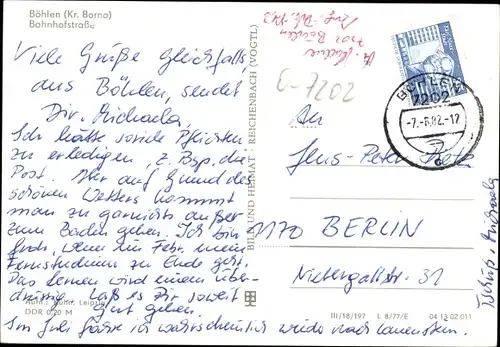 Böhlen (Kr. Borna)
Bahnhofstraße
Viele Grüße gleichfalls
aus Böhlen, sendet
Dir Michaela,
Ich hätte soviele Pflichten
zu erledigen, z. Bsp. die
Post. Aber auf Grund des
schönen Wetters kommt
man zu garnichts außer
zum Baden gehen. Ich bin
froh, wenn im Febr. mein
Fernstudium zu Ende geht.
Das Lernen wird einem über-
drüssig. Laß es Dir soweit
gut gehen.
Im Juli fahre ich wahrscheinlich wieder nach Lauenstein.
Tschüß, Michaela
7202 Böhlen
G-7202
BÖHLEN
7202
-7.-6.82.-12
c
An
Jens-Peter
1170 BERLIN
31
BILD UND HEIMAT · REICHENBACH (VOGTL)
DDR 0,20 M
III/18/197 L 8/77/E 04 13 02 011